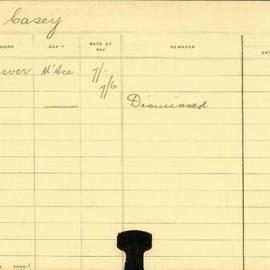 Casey
WORK DEP'T RATE OF PAY REMARKS DAT
iver N'Ace 7/-
7/6
Dismissed